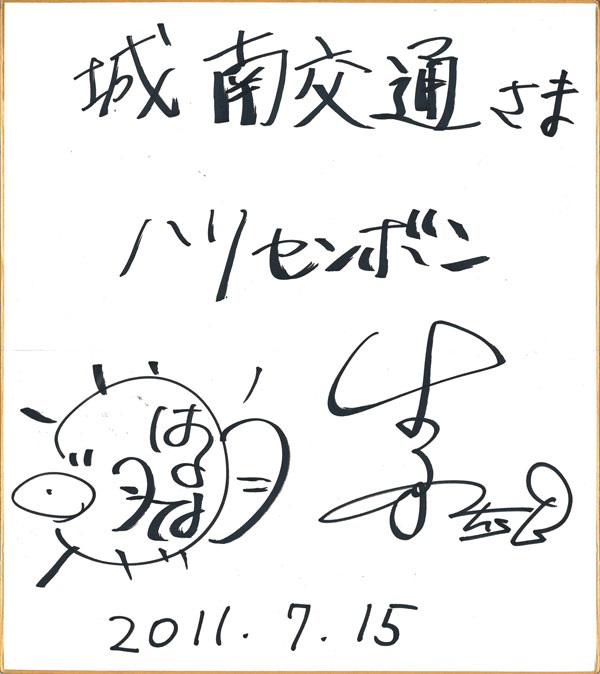 城南交通さま
ハリセンボン
はるな
2011.7.15